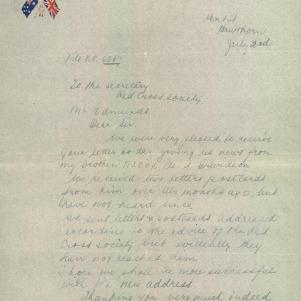 Hawthorn
July 22nd
File No.
To the Secretary
Red Cross Society
Mr Edmunds
Dear Sir.
We were very pleased to receive
your letter to day giving us news from
my brother
We received two letters & postcards
from him over two months ago, but
have not heard since
We sent letters & postcards addressed
according to the advice of the Red
Cross Society but evidently they
have not reached them
I hope we shall be more successful
with the new address
Thanking you very much indeed